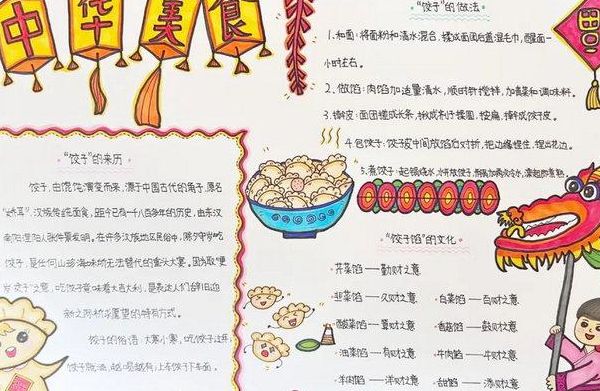 中华美食
"饺子"的做法
1.和面:将面粉和清水混合,揉成面团后盖湿毛巾,醒面一
小时左右。
2.做馅:肉馅加适量清水,顺时针搅拌,加青菜和调味料。
3.擀皮:面团搓成长条,揪成剂子揉圆,按扁,擀成饺子皮。
4.包饺子:饺子皮中间放馅后对折,把边缘捏住,捏出花边。
5.煮饺子:起锅烧水,水开放饺子,
"饺子"的来历
饺子,由馄饨演变而来,源于中国古代的角子,原名
"娇耳",汉族传统面食,距今已有一千八百多年的历史,由东汉
南阳涅阳人张仲景发明。在许多汉族地区民俗中,除夕守岁吃
饺子,是任何山珍海味所无法替代的重头大宴。因为取"更
岁交子"之意,吃饺子意味着大吉大利,是表达人们辞旧迎
新之际祈求愿望的特有方式。
饺子的俗语:大寒小寒,吃饺子过年
饺子就酒,越喝越有;上车饺子下车面。
"饺子馅"的文化
芹菜馅——勤财之意
韭菜馅——久财之意
白菜馅——百财之意
酸菜馅——算财之意
香菇馅——鼓财之意
油菜馅——有财之意
牛肉馅——牛财之意
羊肉馅——洋财之意
甜馅——添财之意